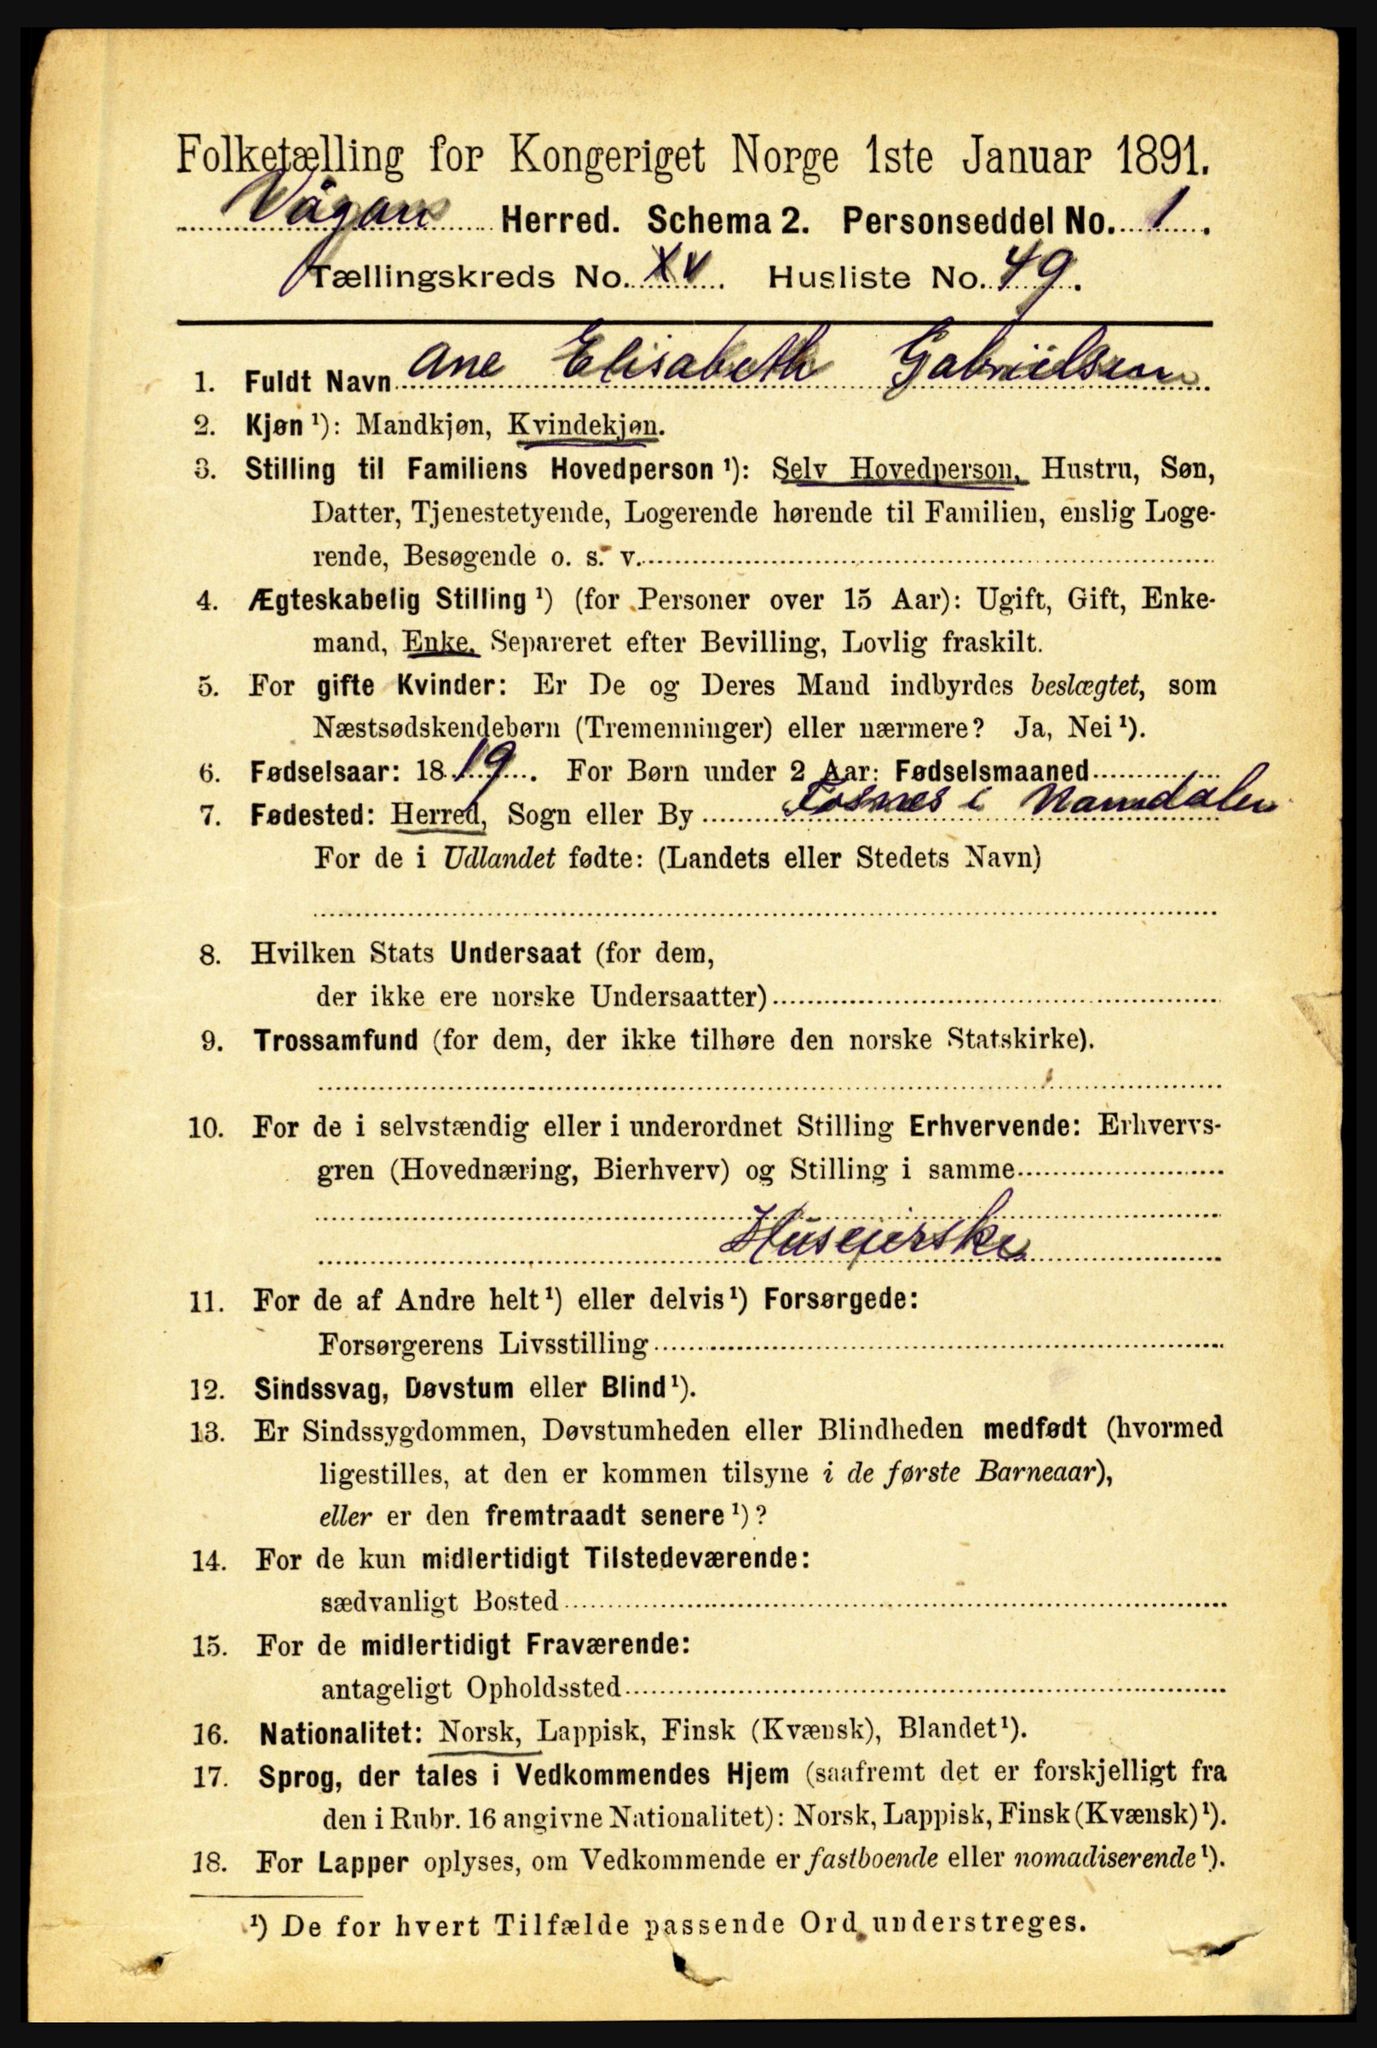 Folketælling for Kongeriget Norge 1ste Januar 1891.
Vågan Herred. Schema 2. Personseddel No. 1.
Tællingskreds No. XV. Husliste No. 49.
1. Fuldt Navn Ane Elisabeth Gabrielsen
2. Kjøn ¹): Mandkjøn, Kvindekjøn.
3. Stilling til Familiens Hovedperson ¹): Selv Hovedperson, Hustru, Søn,
Datter, Tjenestetyende, Logerende hørende til Familien, enslig Loge-
rende, Besøgende o. s. v.
4. Ægteskabelig Stilling ¹) (for Personer over 15 Aar): Ugift, Gift, Enke-
mand, Enke, Separeret efter Bevilling, Lovlig fraskilt.
5. For gifte Kvinder: Er De og Deres Mand indbyrdes beslægtet, som
Næstsødskendebørn (Tremenninger) eller nærmere? Ja, Nei ¹).
6. Fødselsaar: 1819. For Børn under 2 Aar: Fødselsmaaned
7. Fødested: Herred, Sogn eller By Fosnes i Namdalen
For de i Udlandet fødte: (Landets eller Stedets Navn)
8. Hvilken Stats Undersaat (for dem,
der ikke ere norske Undersaatter)
9. Trossamfund (for dem, der ikke tilhøre den norske Statskirke).
10. For de i selvstændig eller i underordnet Stilling Erhvervende: Erhvervs-
gren (Hovednæring, Bierhverv) og Stilling i samme
Huseierske
11. For de af Andre helt ¹) eller delvis ¹) Forsørgede:
Forsørgerens Livsstilling
12. Sindssvag, Døvstum eller Blind ¹).
13. Er Sindssygdommen, Døvstumheden eller Blindheden medfødt (hvormed
ligestilles, at den er kommen tilsyne i de første Barneaar),
eller er den fremtraadt senere ¹)?
14. For de kun midlertidigt Tilstedeværende:
sædvanligt Bosted
15. For de midlertidigt Fraværende:
antageligt Opholdssted
16. Nationalitet: Norsk, Lappisk, Finsk (Kvænsk), Blandet ¹).
17. Sprog, der tales i Vedkommendes Hjem (saafremt det er forskjelligt fra
den i Rubr. 16 angivne Nationalitet): Norsk, Lappisk, Finsk (Kvænsk) ¹).
18. For Lapper oplyses, om Vedkommende er fastboende eller nomadiserende ¹).
¹) De for hvert Tilfælde passende Ord understreges.